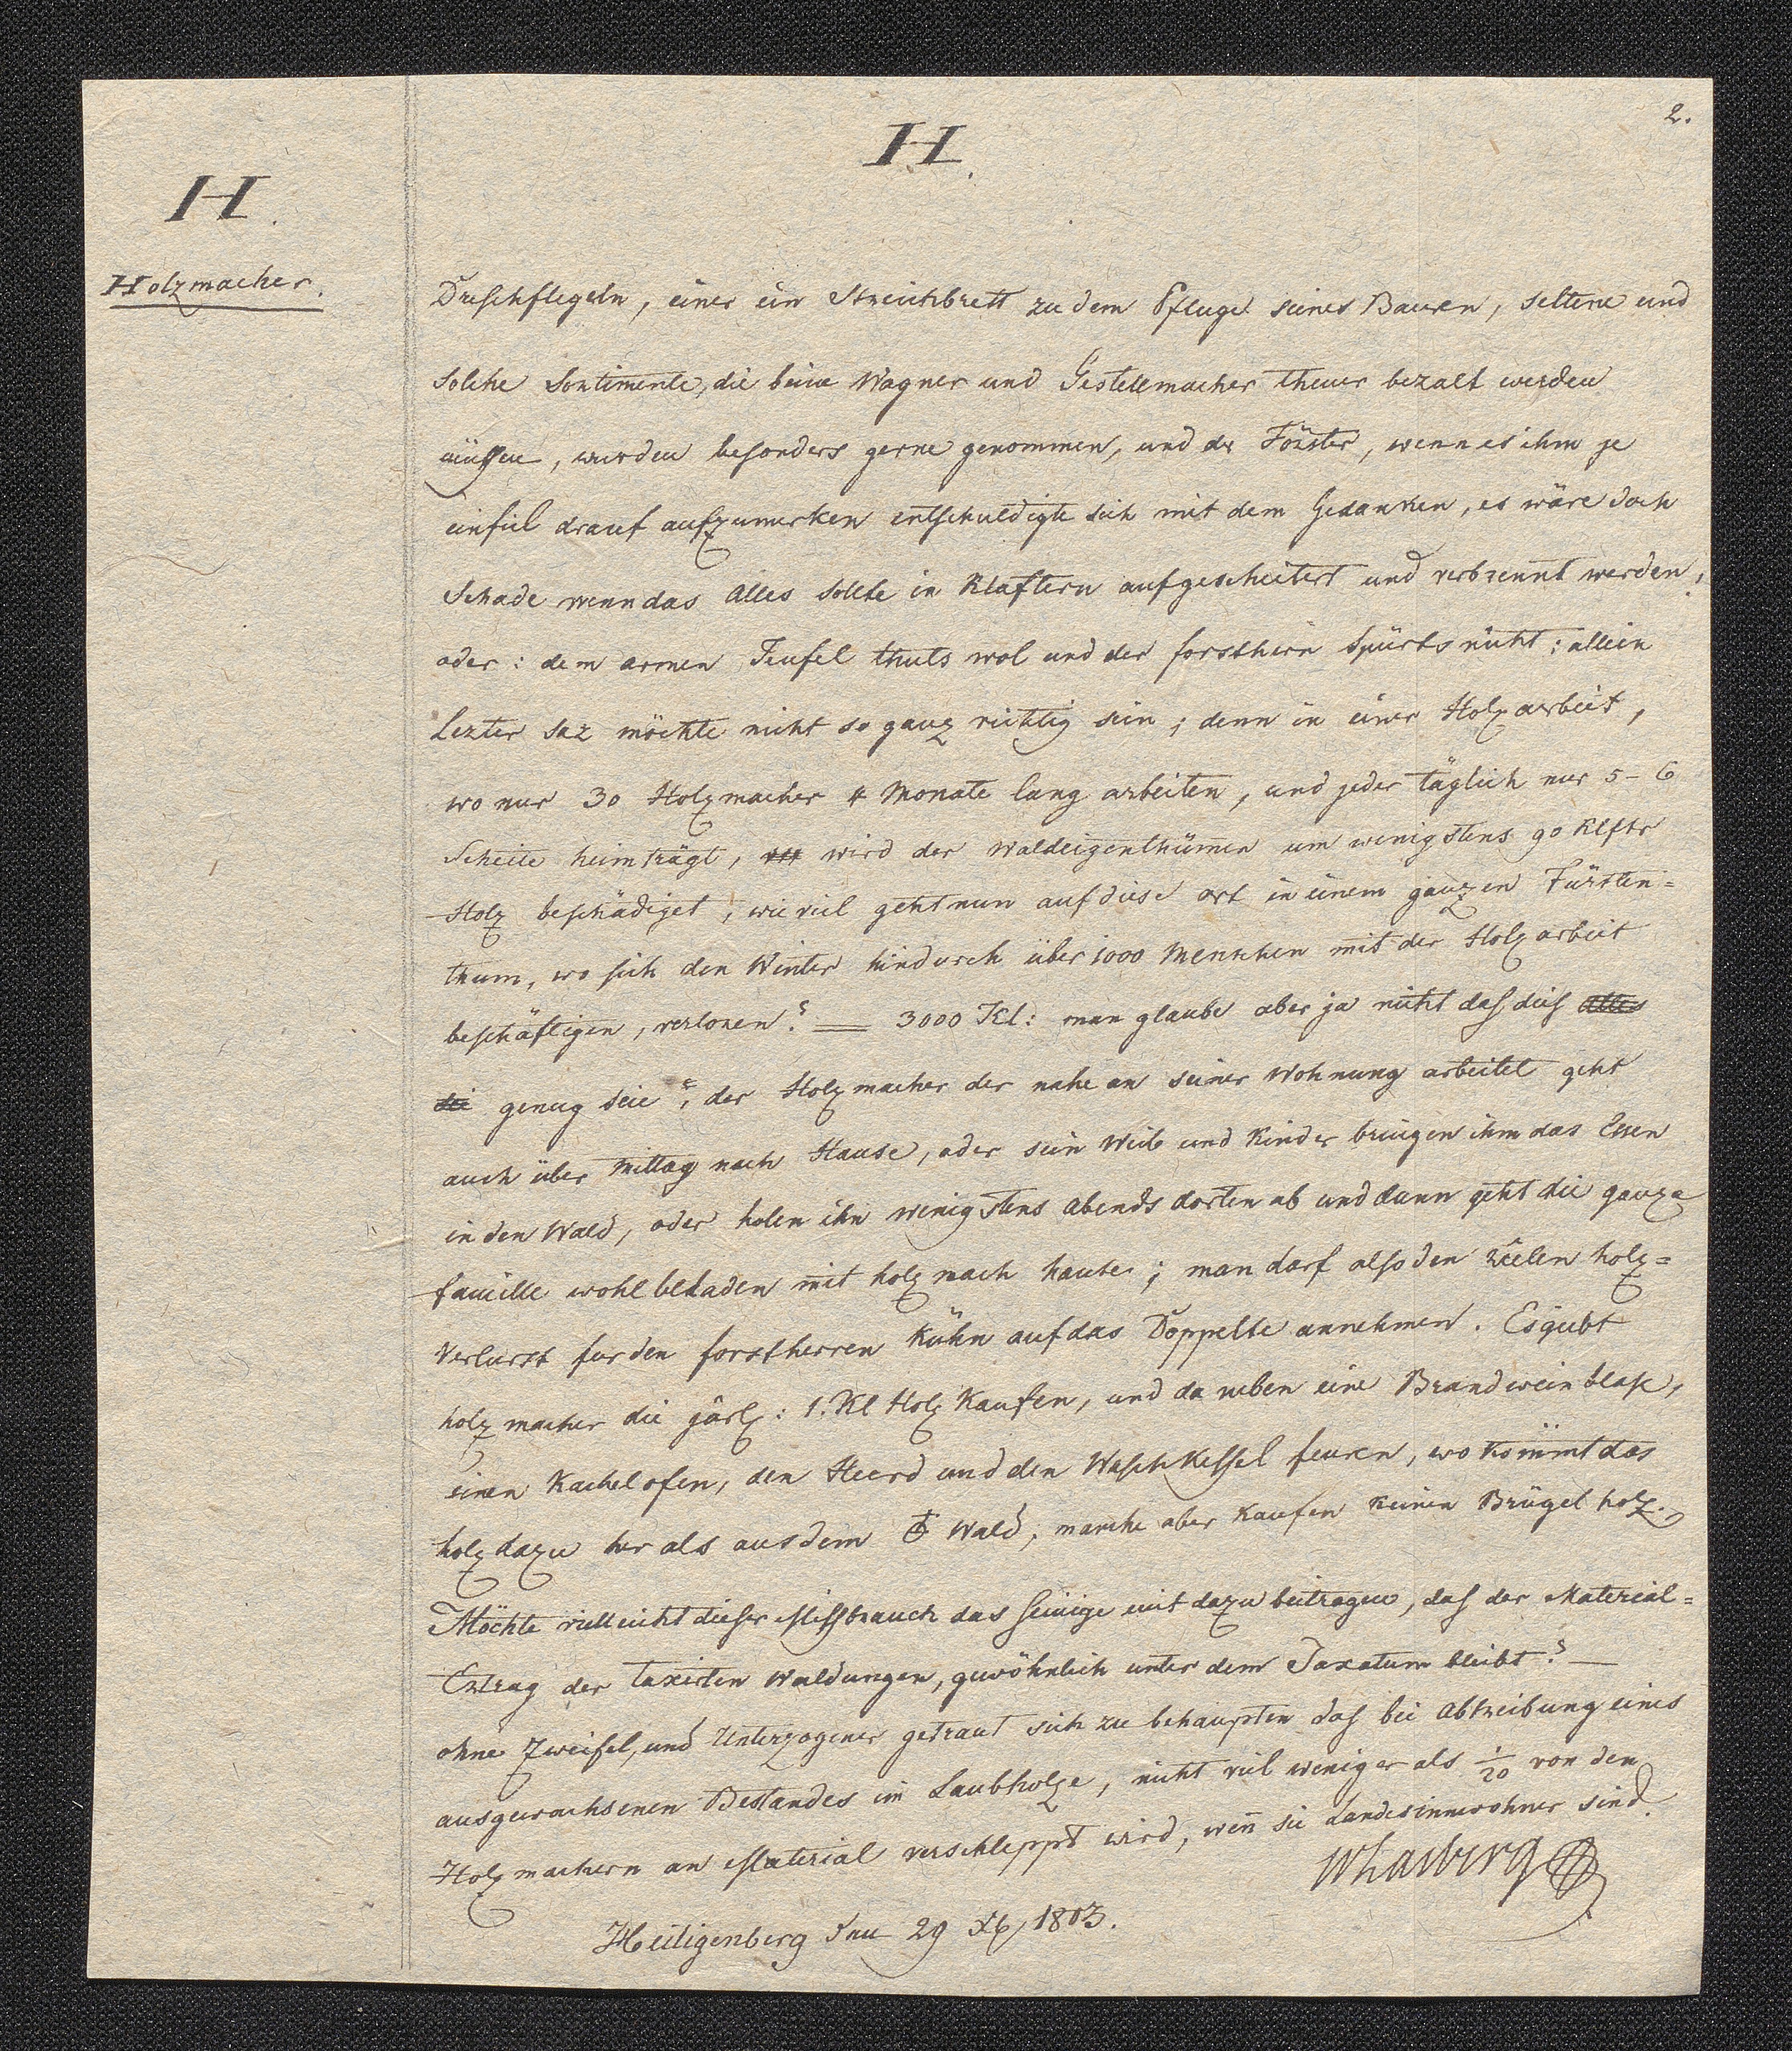 2.
H.
H.
Holzmacher.
Dreschflegeln, einer ein Streichbrett zu dem Pfluge seines Bauren, seltene und
solche Sortimente, die beim Wagner und Gestellmacher theuer bezalt werden
müssen, wurden besonders gerne genommen, und der Förster, wenn es ihm je
einfiel drauf aufzumerken entschuldigte sich mit dem Gedanken, es wäre doch
Schade wenn das Alles sollte in Klaftern aufgescheitert und verbrennt werden;
oder: dem armen Teufel thuts wol und der forstherr spürts nicht: allein
Lezter saz möchte nicht so ganz richtig sein; denn in einer Holzarbeit,
wo nur 30 Holzmacher 4 Monate lang arbeiten, und jeder täglich nur 5-6
Scheite heimträgt, wird der Waldeigenthümer um wenigstens 90 Klftr
Holz beschädiget, wie viel geht nun auf diese art in einem ganzen Fürsten=
thum, wo sich den Winter hindurch über 1000 Menschen mit der Holzarbeit
beschäftigen, verloren? — 3000 Kl: man glaube aber ja nicht daß dies alles
sei genug seie, der Holzmacher der nahe an seiner Wohnung arbeitet geht
auch über Mittag nach Hause, oder sein Weib und Kinder bringen ihm das Essen
in den Wald, oder holen ihn wenigstens Abends dorten ab und dann geht die ganze
familie wohl beladen mit holz nach hause; man darf also den vielen holz=
Verlurst für den forstherren Kühn auf das Doppelte annehmen. Es giebt
holzmacher die järl: 1. Kl Holz Kaufen, und da neben eine Brandweinblase,
einen Kachelofen, den Heerd und den WaschKessel feuren, wo Kömmt das
holz dazu her als aus dem Wald; manche aber kaufen keinen Brügel holz.
Möchte vielleicht dieser Missbrauch das seinige mit dazu beitragen, daß der Material=
Ertrag der taxirten Waldungen, gewöhnlich unter dem Taxatum bleibt? —
ohne Zweifel, und Unterzogener getraut sich zu behaupten daß bei Abtreibung eines
ausgewachsenen Bestandes im Laubholze, nicht viel weniger als 1/20 von den
Holzmachern an Material verschleppt wird, weñ sie Landesinnwohner sind.
Heiligenberg den 29 Xb 1803.